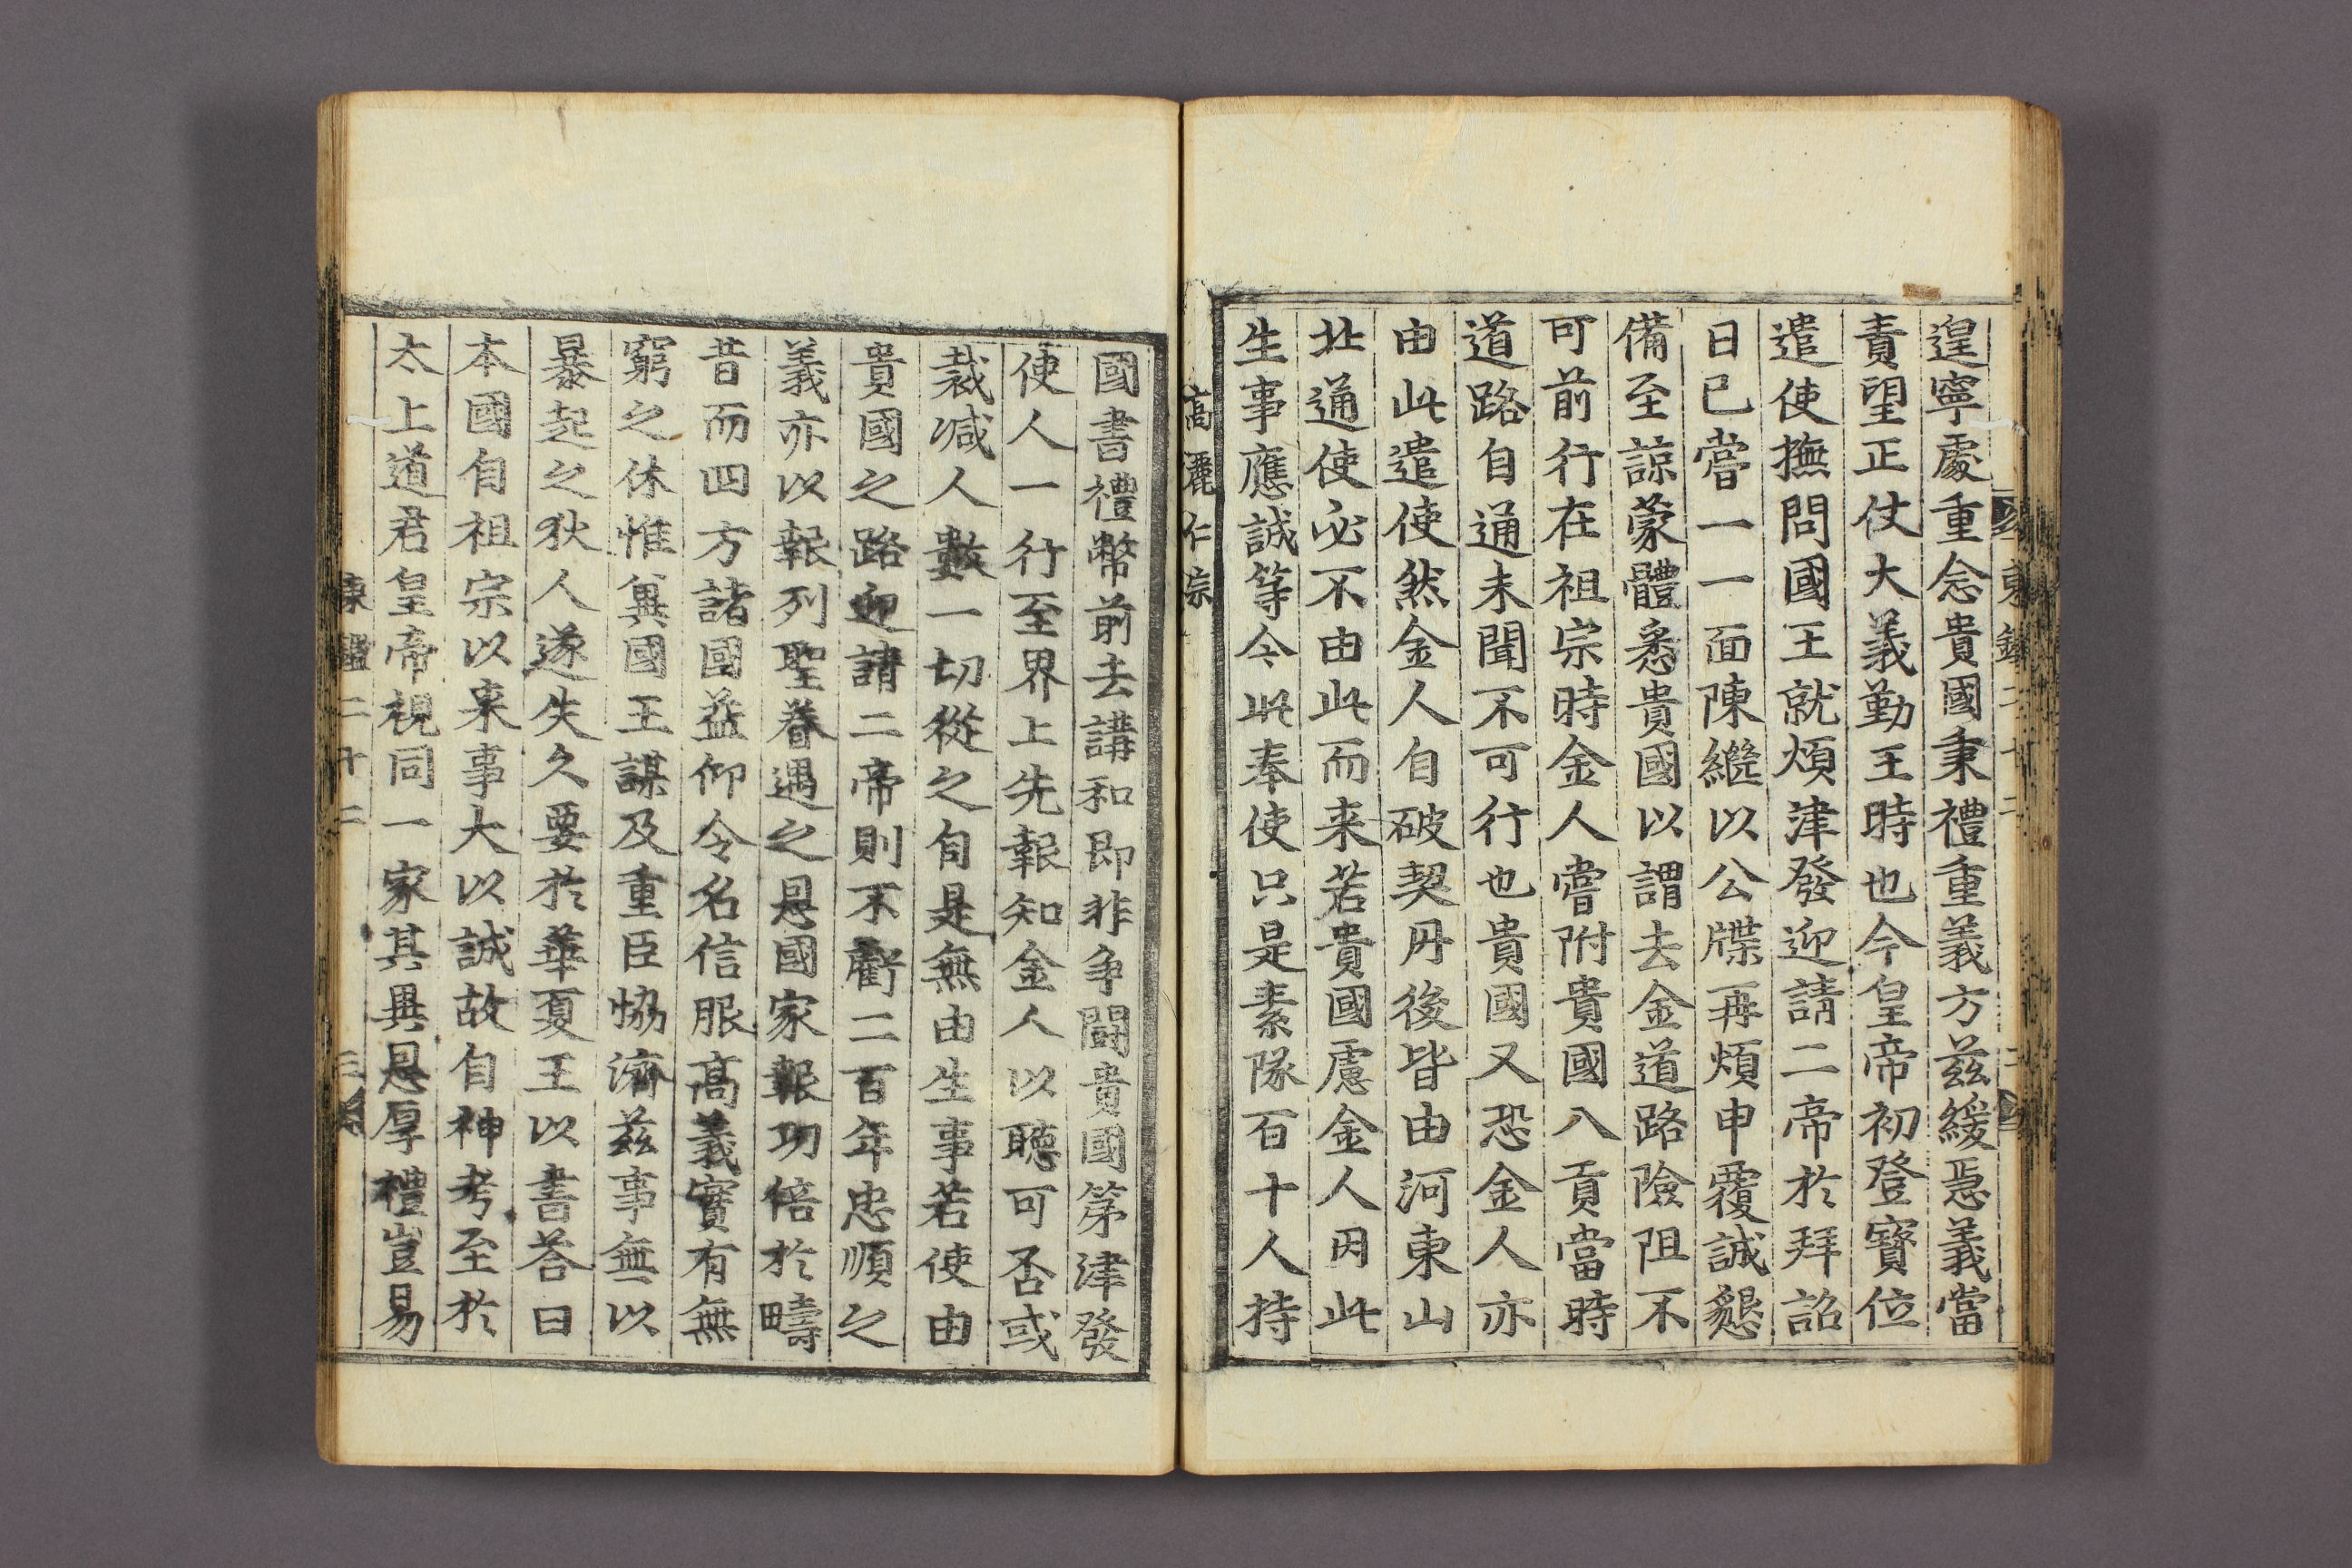 遑寧處重念貴國秉禮重義方玆緩急義當
責望正仗大義勤王時也今皇帝初登寶位
遣使撫問國王就煩津發迎請二帝於拜詔
日已嘗一一面陳繼以公牒再煩申覆誠懇
備至諒蒙體悉貴國以謂去金道路險阻不
可前行在祖宗時金人嘗附貴國入貢當時
道路自通未聞不可行也貴國又恐金人亦
由此遣使然金人自破契丹後皆由河東山
北通使必不由此而来若貴國慮金人因此
生事應誠等今此奉使只是素隊百十人持
高麗仁宗
國書禮幣前去講和即非爭鬪貴國第津發
使人一行至界上先報知金人以聽可否或
裁减人數一切從之自是無由生事若使由
貴國之路迎請二帝則不虧二百年忠順之
義亦以報列聖眷遇之恩國家報功倍於疇
昔而四方諸國益仰令名信服高義實有無
窮之休惟兾國王謀及重臣恊濟玆事無以
暴起之狄人遂失久要於華夏王以書荅曰
本國自祖宗以来事大以誠故自神考至於
太上道君皇帝視同一家其異恩厚禮豈易
東鑑二十二 三